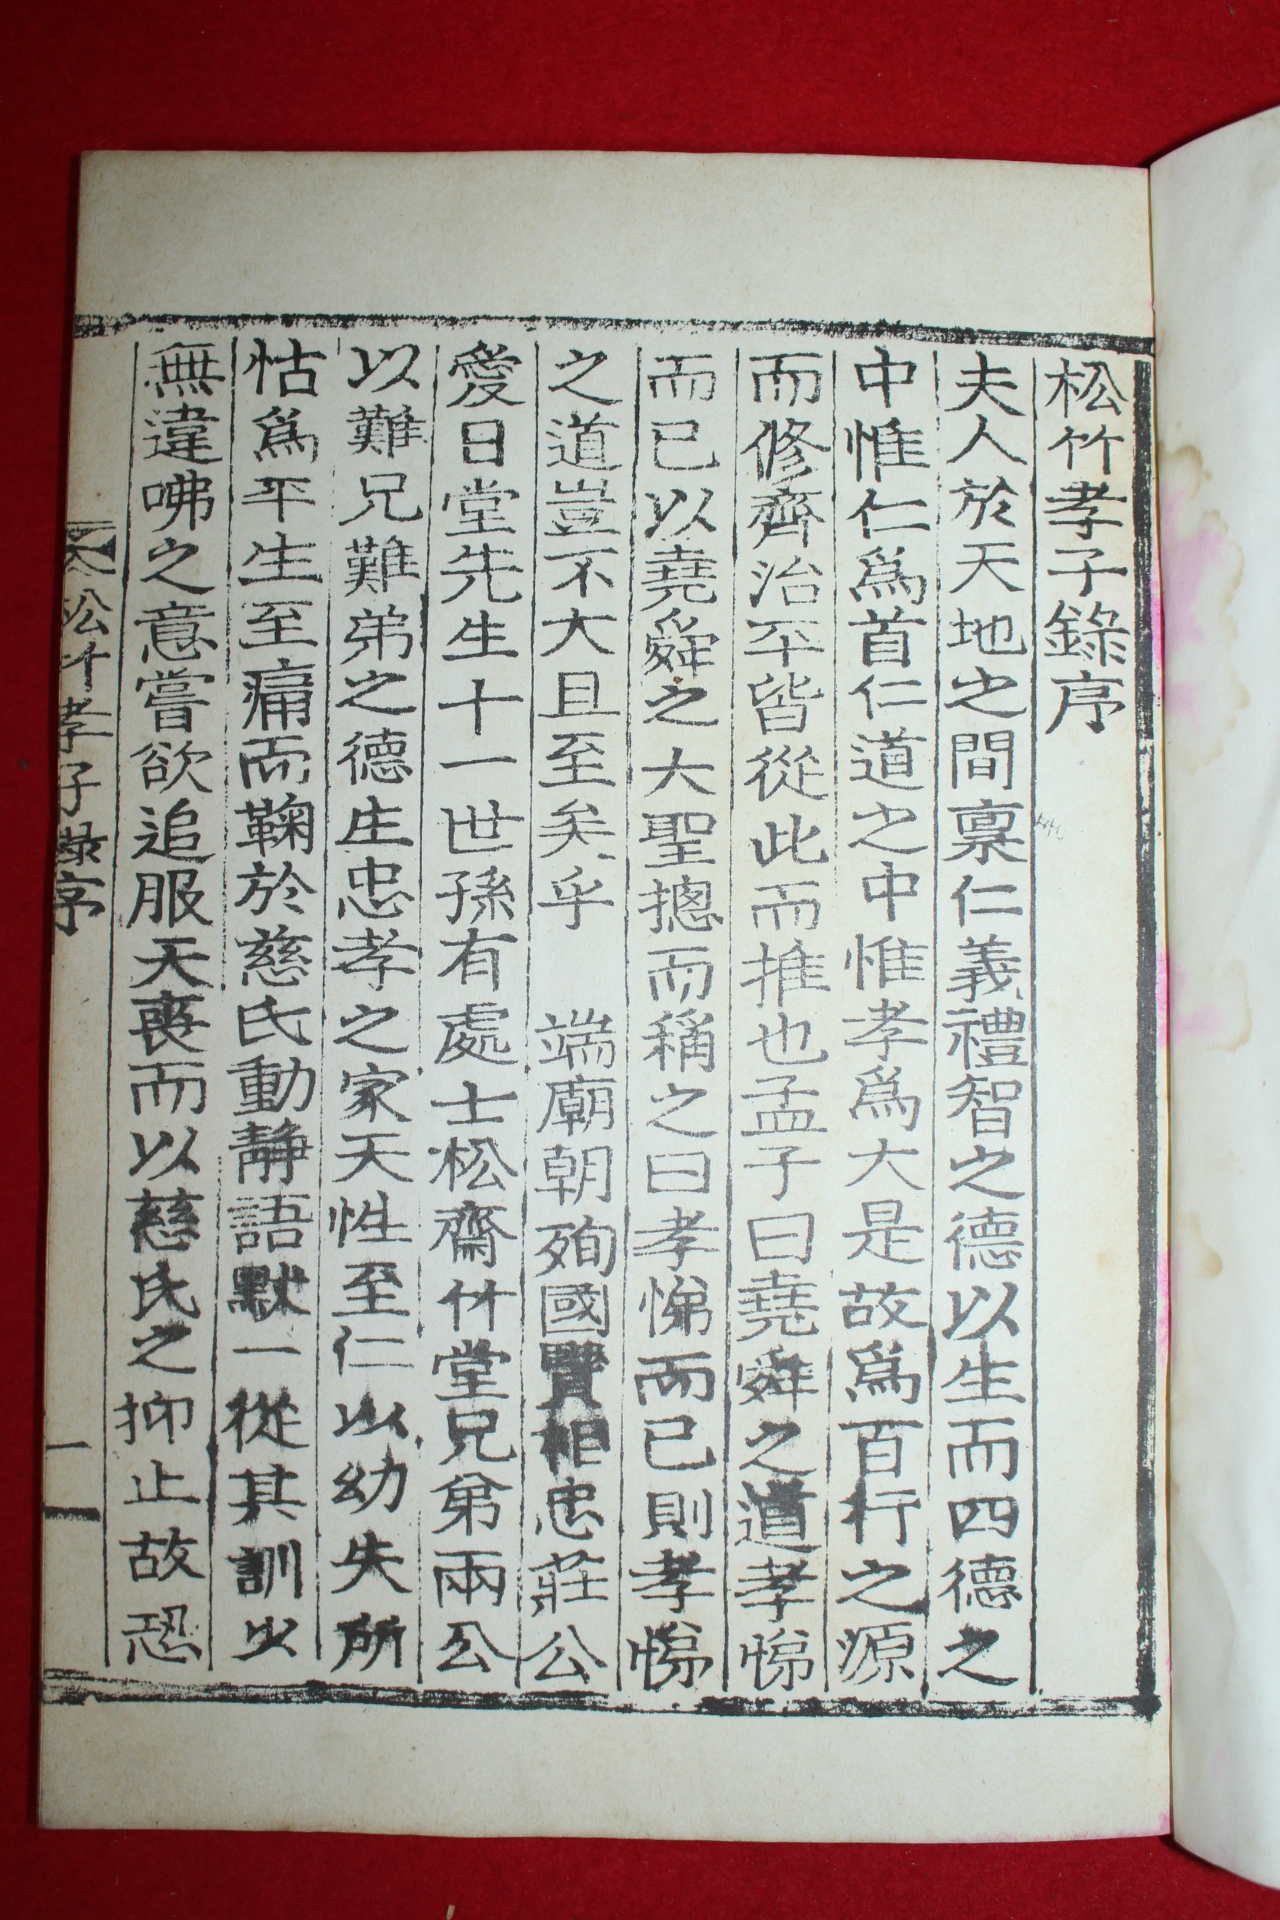 松竹孝子錄序
夫人於天地之間稟仁義禮智之德以生而四德之
中惟仁爲首仁道之中惟孝爲大是故爲百行之源
而修齊治平皆從此而推也孟子曰堯舜之道孝悌
而已以堯舜之大聖摠而稱之曰孝悌而已則孝悌
之道豈不大且至矣乎　端廟朝殉國賢相忠莊公
愛日堂先生十一世孫有處士松齋竹堂兄弟兩公
以難兄難弟之德生忠孝之家天性至仁以幼失所
怙爲平生至痛而鞠於慈氏動靜語默一從其訓少
無違咈之意嘗欲追服天喪而以慈氏之抑止故恐
松竹孝子錄序
一